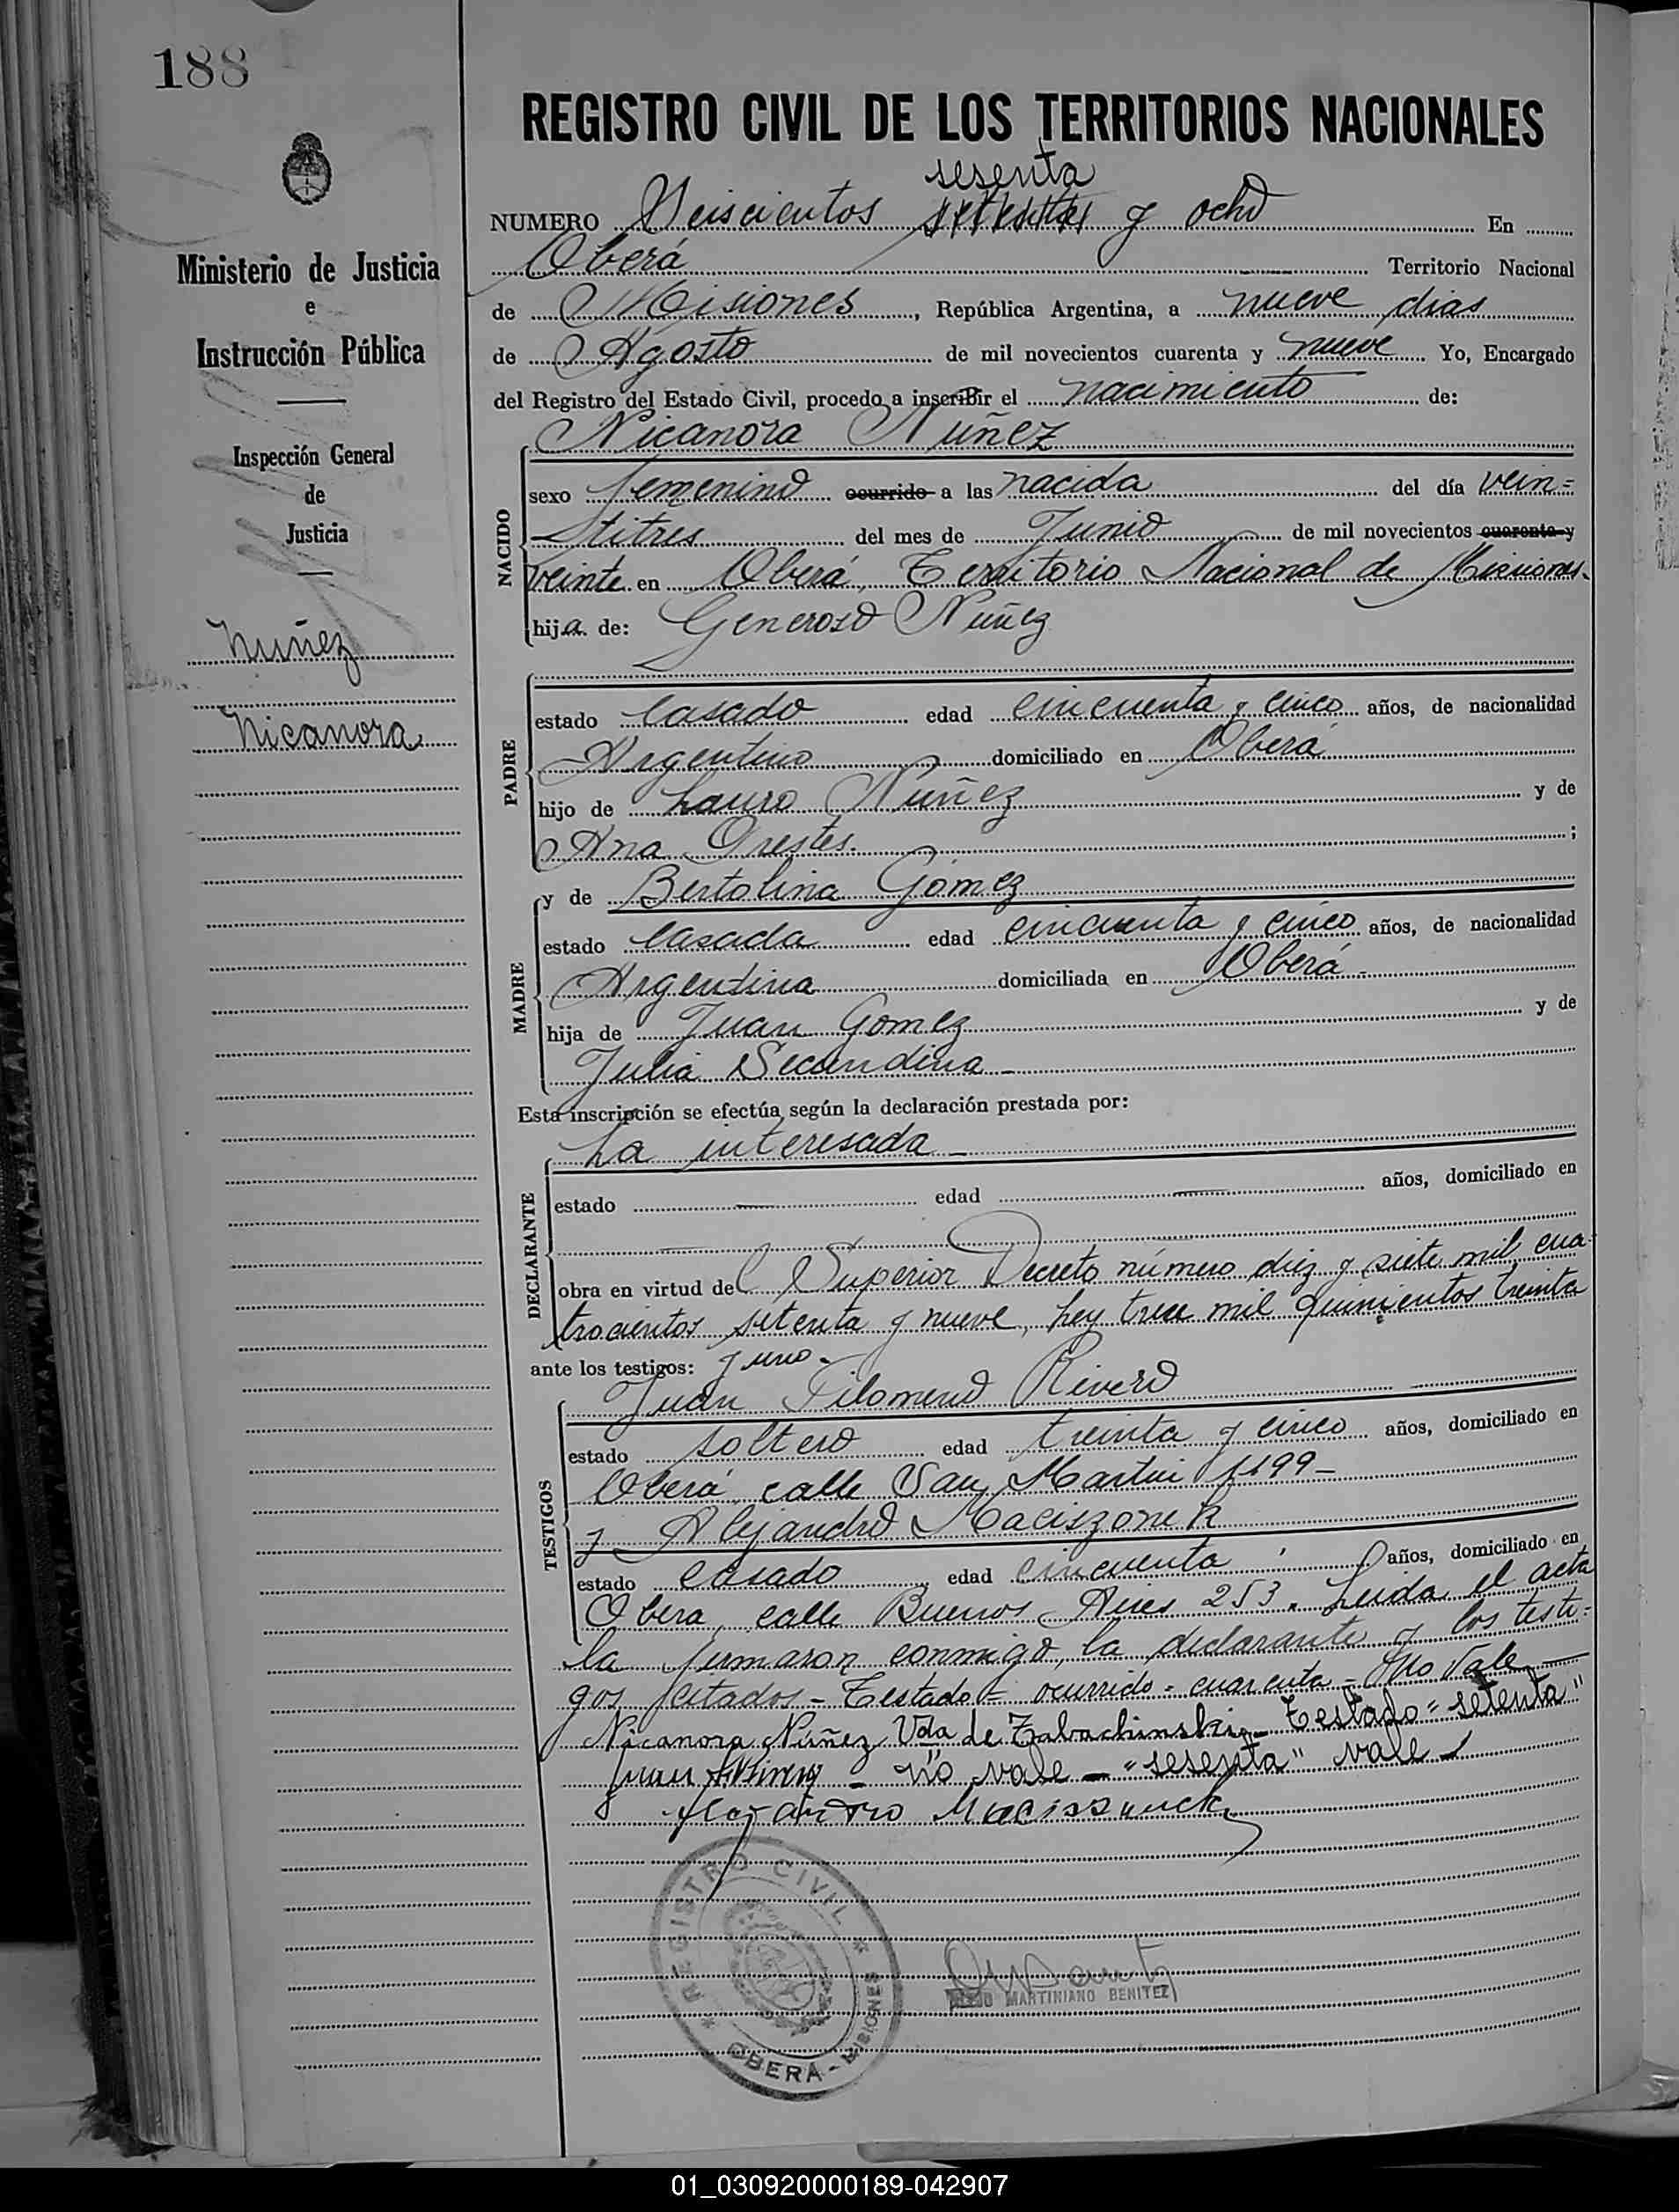 188
REGISTRO CIVIL DE LOS TERRITORIOS NACIONALES
sesenta
NUMERO Seiscientos setenta y ocho En
Oberá Territorio Nacional
de Misiones, República Argentina, a nueve dias
de Agosto de mil novecientos cuarenta y nueve Yo, Encargado
del Registro del Estado Civil, procedo a inscribir el nacimiento de:
Nicanora Nuñez
Ministerio de Justicia
e
Instrucción Pública
Inspección General
de
Justicia
Nuñez
Nicanora
NACIDO
sexo femenino ocurrido a las nacida del día vein=
titres del mes de Junio de mil novecientos cuarenta y
veinte en Oberá, Territorio Nacional de Misiones.
hija de: Generoso Nuñez
PADRE
estado Casado edad cincuenta y cinco años, de nacionalidad
Argentino domiciliado en Oberá
hijo de Lauro Nuñez y de
Ana Orestes. ;
y de Bertolina Gómez
MADRE
estado Casada edad cincuenta y cinco años, de nacionalidad
Argentina domiciliada en Oberá-
hija de Juan Gomez y de
Julia Secundina -
Esta inscripción se efectúa según la declaración prestada por:
La interesada -
DECLARANTE
estado edad años, domiciliado en
obra en virtud del Superior Decreto número diez y siete mil cua-
trocientos setenta y nueve, ley trece mil quinientos treinta
ante los testigos: y uno-
Juan Filomeno Rivero
TESTIGOS
estado soltero edad treinta y cinco años, domiciliado en
Oberá, calle San Martin 1199-
y Alejandro Maciszonek
estado casado edad cincuenta años, domiciliado en
Obera, calle Buenos Aires 253. Leida el acta
la firmaron conmigo, la declarante y los testi=
gos citados - Testado = ocurrido = cuarenta = No Vale
Nicanora Nuñez Vda de Zabachinski- Testado "setenta"
Juan - no vale - "sesenta" vale
REGISTRO CIVIL
* OBERA - MISIONES *
MARTINIANO BENITEZ
01_030920000189-042907